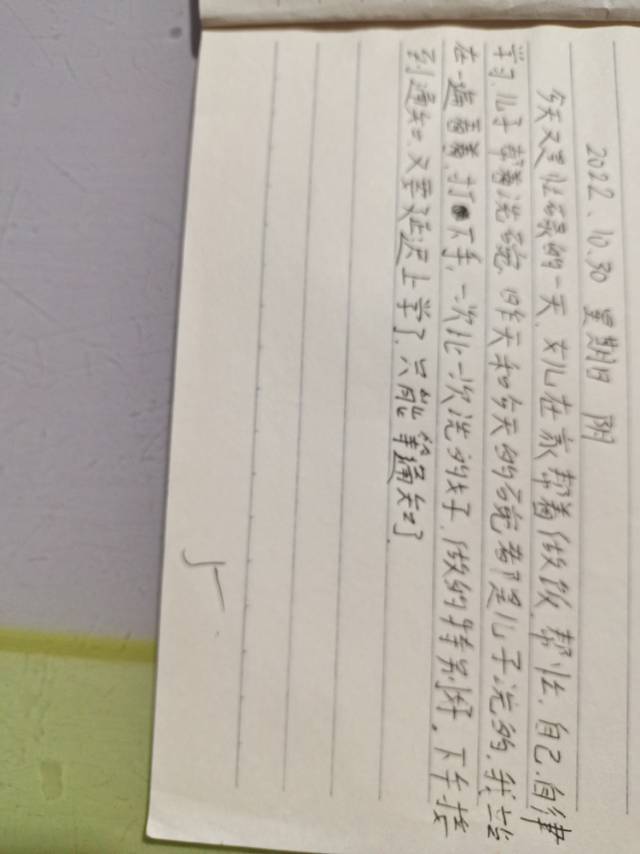 2022、10.30 星期日 阴
今天又是忙碌的一天，女儿在家帮着做饭帮忙，自己.自律
学习，儿子帮着洗碗，昨天和今天的碗都是儿子洗的，我站
在一遍看着，打下手，一次比一次洗的好，做的特别好。下午接
到通知，又要延迟上学了，只能等通知了